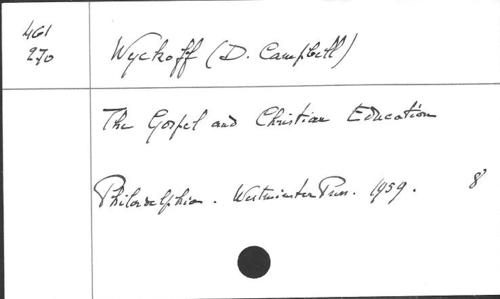 461
270
Wyckoff (D. Campbell)
The Gospel and Christian Education
Philadelphia. Westminster Press. 1959. 8